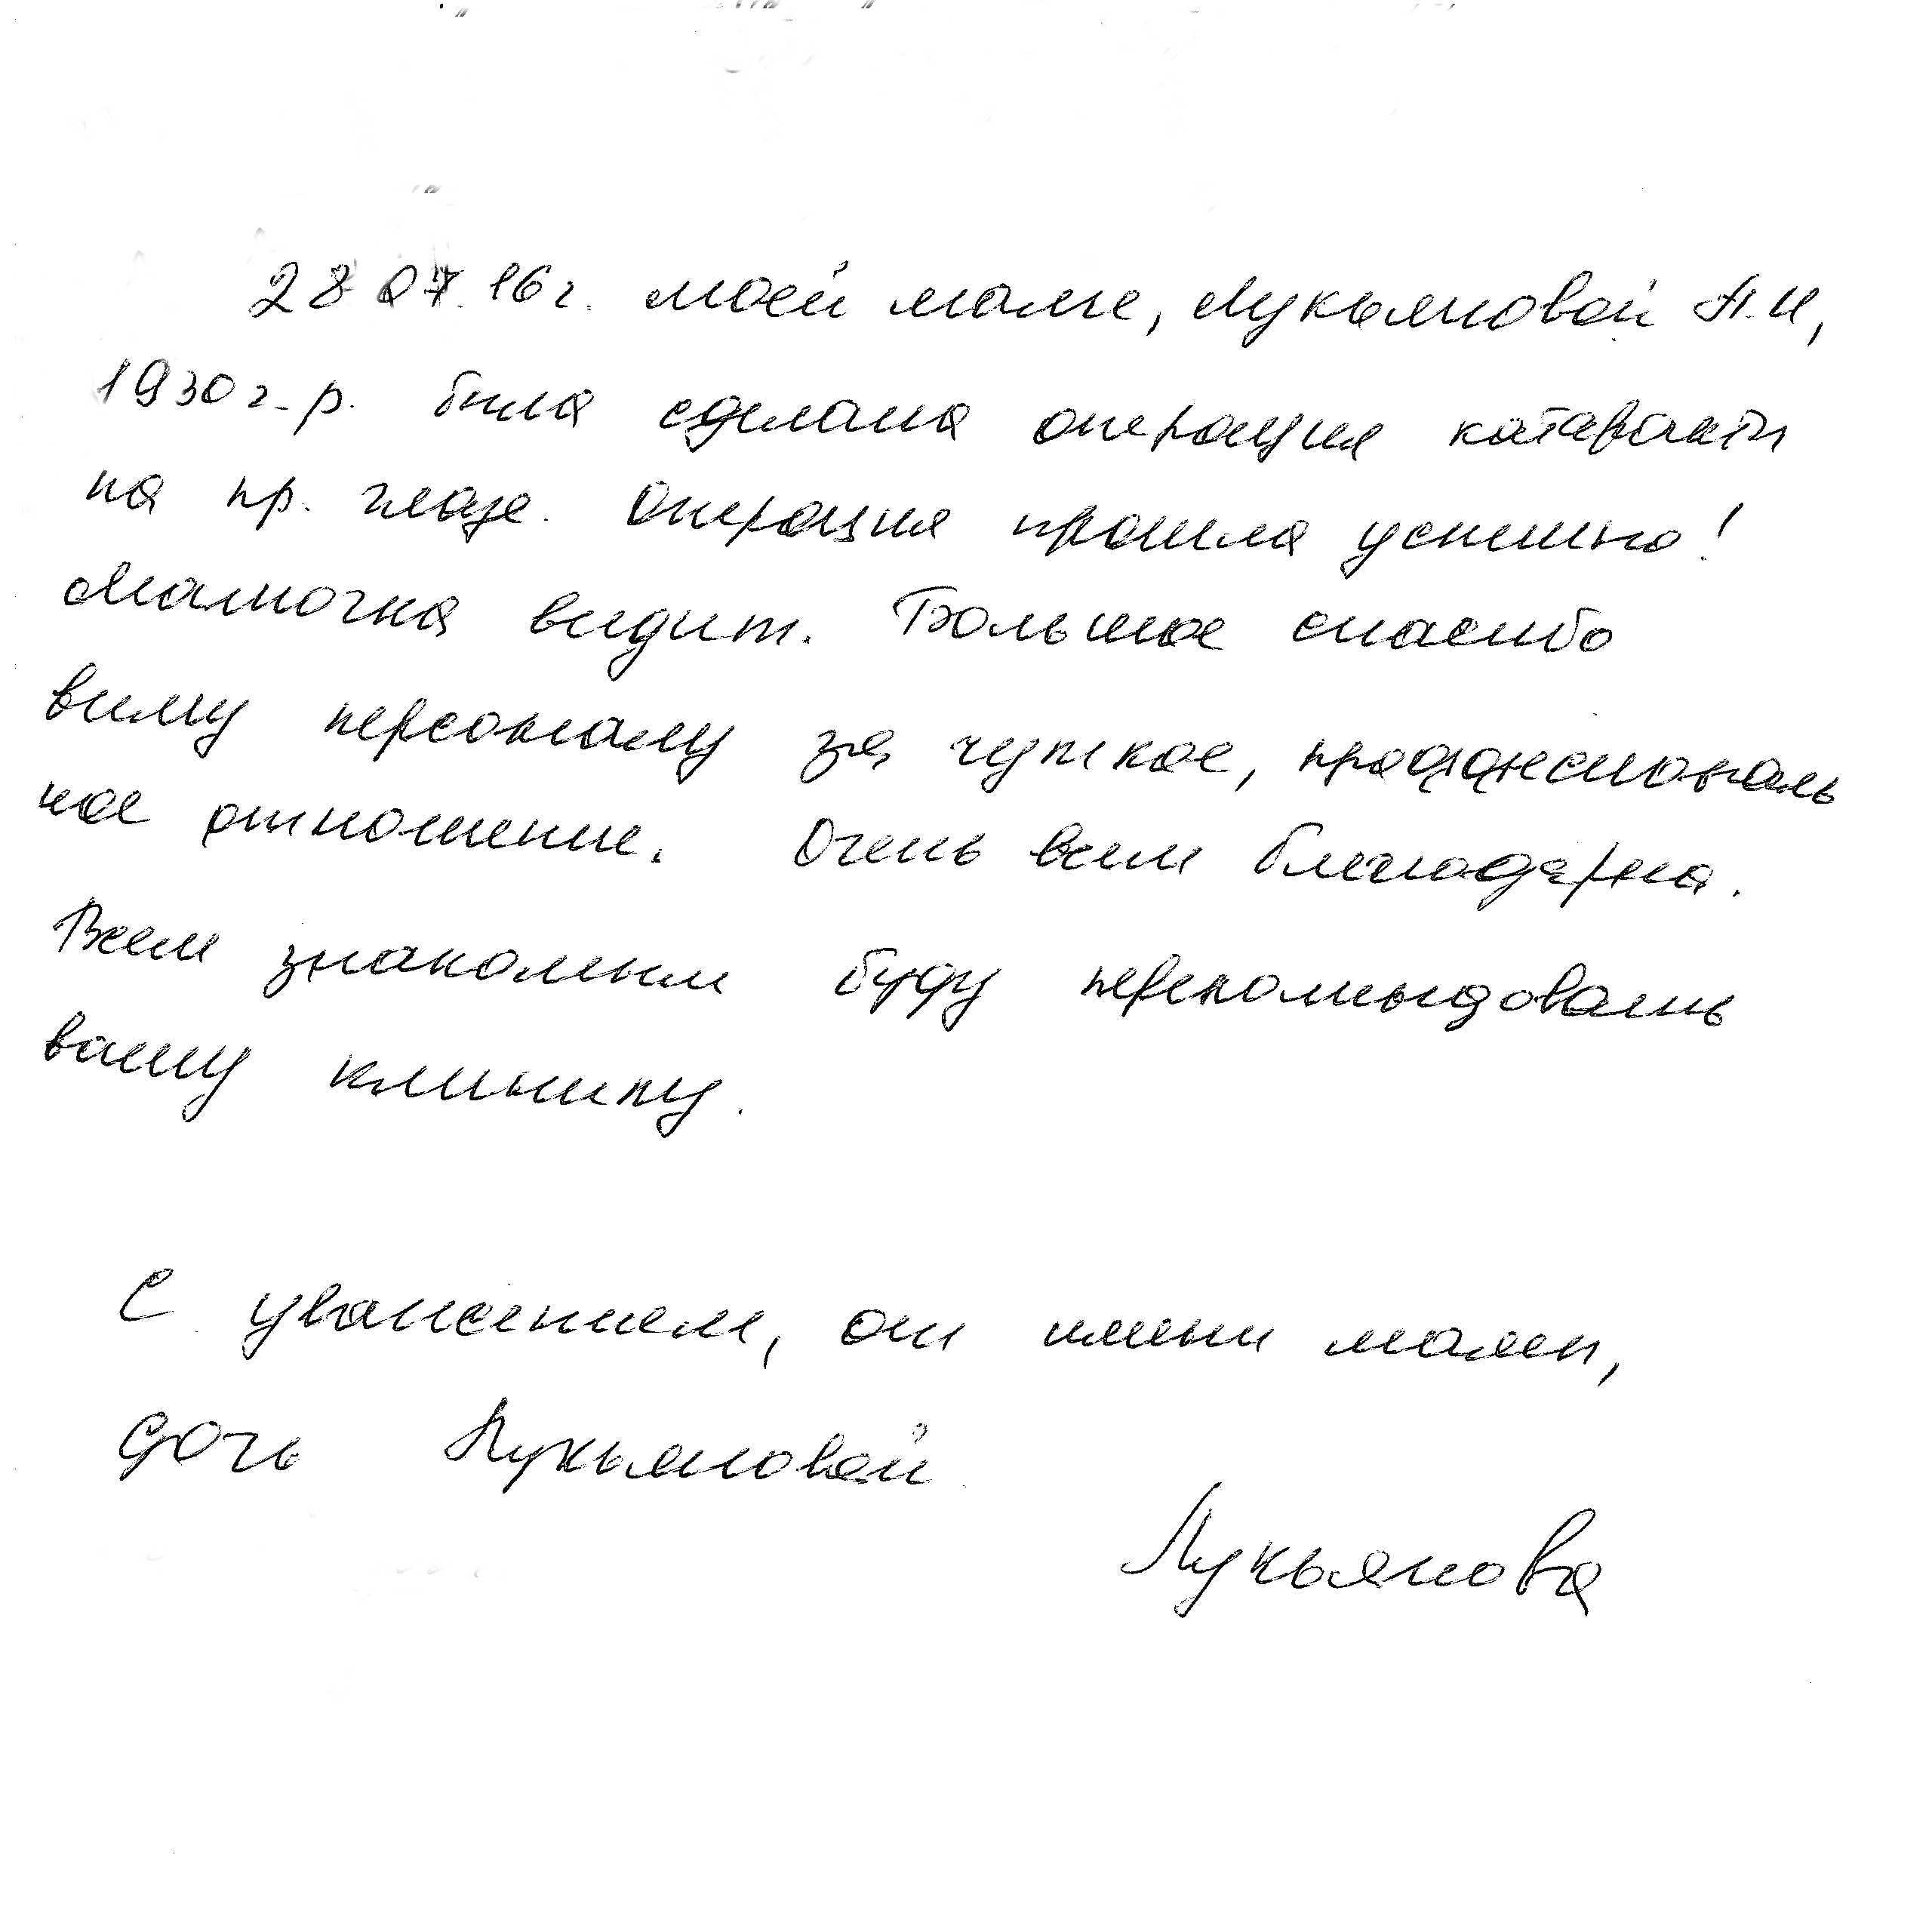 28.07.16 г. моей маме, Лукьяновой А.И,
1930 г.р. была сделана операция катаракты
на пр. глазе. Операция прошла успешно!
Мамочка видит. Большое спасибо
всему персоналу за чуткое, профессиональ
ное отношение. Очень всем благодарна.
Всем знакомым буду
вашу клинику.
С уважением, от имени мамы,
дочь Лукьяновой.
Лукьянова